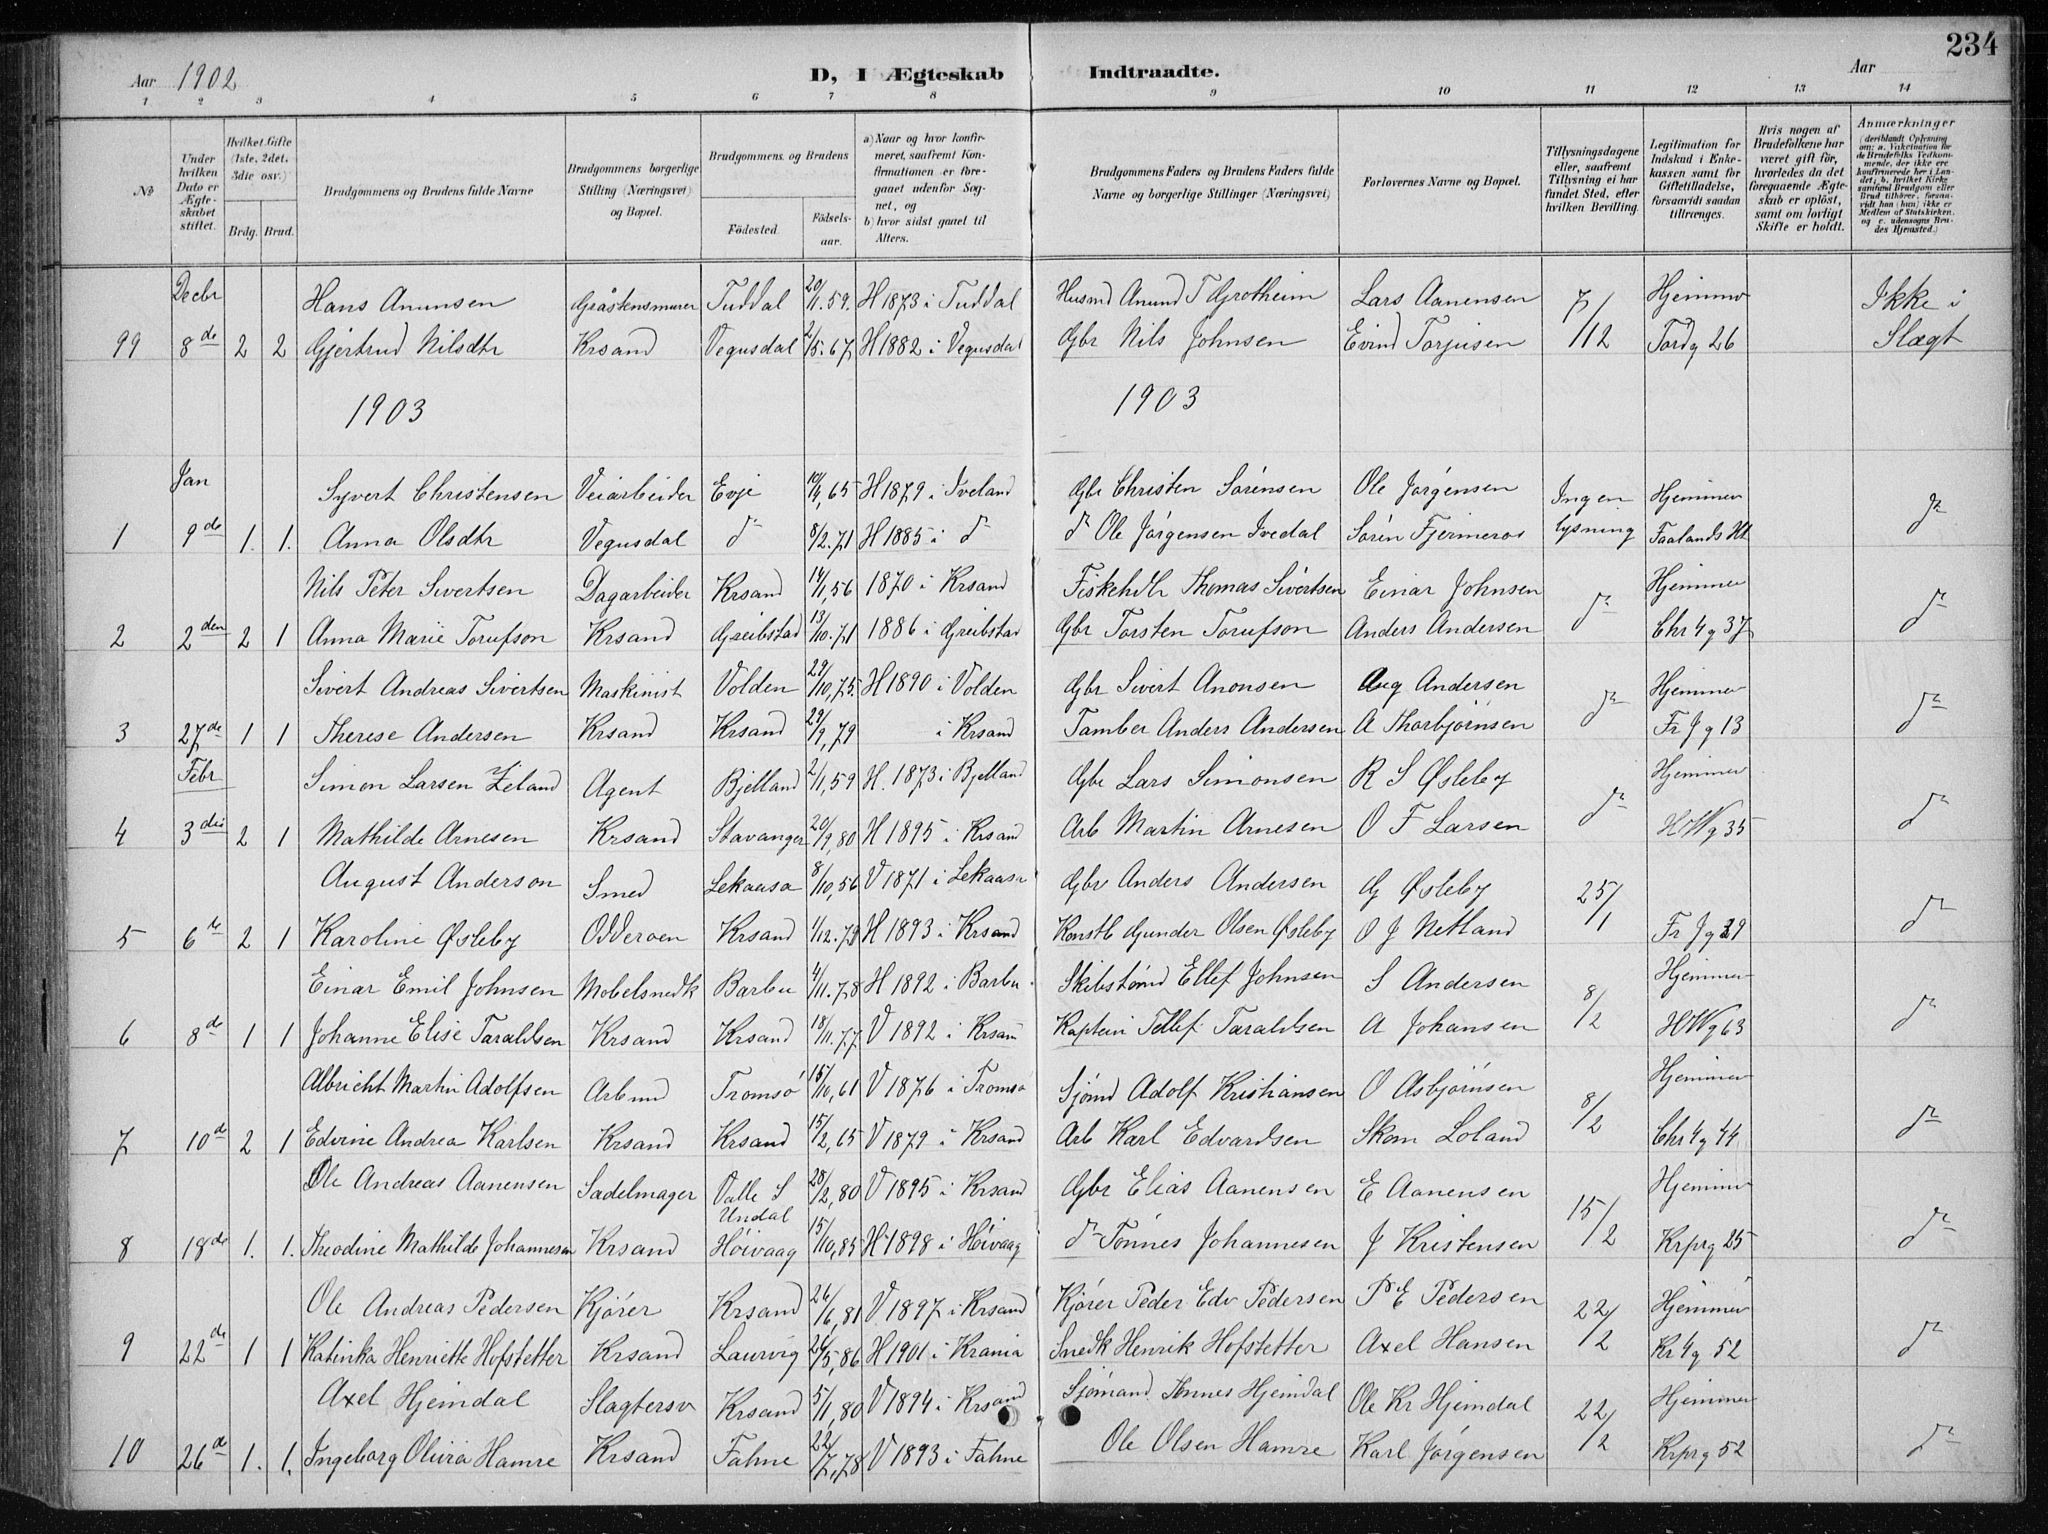 234
Aar 1902 D, I Ægteskab Indtraadte. Aar
1 2 3 4 5 6 7 8 9 10 11 12 13 14
No
Under hvilken Dato er Ægteskabet stiftet.
Hvilket Gifte (1ste, 2det, 3die osv.)
Brdg. Brud.
Brudgommens og Brudens fulde Navne
Brudgommens borgerlige Stilling (Næringsvei) og Bopæl.
Brudgommens og Brudens
Födested. Födselsaar.
a) Naar og hvor konfirmeret, saafremt Konfirmationen er foregaaet udenfor Sognet, og
b) hvor sidst gaaet til Alters.
Brudgommens Faders og Brudens Faders fulde Navne og borgerlige Stillinger (Næringsvei)
Forlovernes Navne og Bopæl.
Tillysningsdagene eller, saafremt Tillysning ei har fundet Sted, efter hvilken Bevilling.
Legitimation for Indskud i Enkekassen samt for Giftetilladelse, forsaavidt saadan tiltrænges.
Hvis nogen af Brudefolkene har været gift för, hvorledes da det foregaaende Ægteskab er oplöst, samt om lovligt Skifte er holdt.
Anmærkninger
(deriblandt Oplysning om: a. Vakcination for de Brudefolks Vedkommende, der ikke ere konfirmerede her i Landet; b. hvilket Kirkesamfund Brudgom eller Brud tilhörer, forsaavidt han (hun) ikke er Medlem af Statskirken, og c. udensogns Brudes Hjemsted.)
Decbr Hans Anunsen Gråstensmurer Tuddal 20/11.59. H 1873 i Tuddal Husmd Anund T Grotheim Lars Aanensen 7/12 Hjemmer Ikke i
99 8de 2 2 Gjertrud Nilsdtr Krsand Vegusdal 2/5.67 H 1882 i Vegusdal Gbr Nils Johnsen Eivind Torjusen Tordg 26 Slægt
1903 1903
Jan Syvert Christensen Veiarbeider Evje 10/4,65 H 1879 i Iveland Gbr Christen Sørensen Ole Jørgensen Ingen Hjemmer
1 9de 1. 1. Anna Olsdtr Vegusdal do 8/2.71 H 1885 i do do Ole Jørgensen Ivedal Sørin Fjermeros lysning Faalands Ht do
Nils Peter Sivertsen Dagarbeider Krsand 14/1,56 1870 i Krsand Fiskehdlr Thomas Sivertsen Einar Johnsen do Hjemmer do
2 2den 2 1 Anna Marie Torufson Krsand Greibstad 13/10.71 1886 i Greibstad Gbr Torsten Torufson Anders Andersen Chr 4 g 37
Sivert Andreas Sivertsen Maskinist Volden 29/10,75. H 1890 i Volden Gbr Sivert Anonsen Aug Andersen do Hjemmer do
3 27de 1 1 Therese Andersen Krsand Krsand 29/9,79 i Krsand Tømber Anders Andersen A Thorbjørnsen Fr J g 13
Febr Simon Larsen Zeland Agent Bjelland 2/1,59 H. 1873 i Bjelland Gbr Lars Simonsen R S Øsleby do Hjemmer do
4 3die 2 1 Mathilde Arnesen Krsand Stavanger 20/9,80 H 1895 i Krsand Arb Martin Arnesen O F Larsen H W g 35
August Anderson Smed Lekaasa 8/10,56 V 1871 i Lekaasa Gbr Anders Andersen G Øsleby 25/1
5 6te 2 1 Karoline Øsleby Odderoen Krsand 1/12.79 H 1893 i Krsand Konstb Gunder Olsen Øsleby O J Netland Fr J g 29 do
Einar Emil Johnsen Mobelsnedk Barbu 4/11.78 H 1892 i Barbu Skibstømd Ellef Johnsen S Andersen 8/2 Hjemmer do
6 8de 1 1 Johanne Elise Taraldsen Krsand Krsand 18/11.77 V 1892 i Krsand Kaptein Tellef Taraldsen A Johansen H W g 63
Albricht Martin Adolfsen Arbmd Tromsø 15/10,61 V 1876 i Tromsø Sjømd Adolf Kristiansen O Asbjørnsen 8/2 Hjemmer
7 10de 2 1 Edvine Andrea Karlsen Krsand Krsand 15/2,65 V 1879 i Krsand Arb Karl Edvardsen Skom Loland Chr 4 g 44 do
Ole Andreas Aanensen Sadelmager Valle S Undal 28/2,80 V 1895 i Krsand Gbr Elias Aanensen E Aanensen 15/2 Hjemmer
8 18de 1. 1. Theodine Mathilde Johannesen Krsand Høivaag 15/10,83 H 1898 i Høivaag do Tønnes Johannesen J Kristensen Krprg 25 do
Ole Andreas Pedersen Kjører Krsand 26/6,81 V 1897 i Krsand Kjører Peder Edv Pedersen P E Pedersen 22/2 Hjemmer
9 22de 1 1 Katinka Henriette Hofstetter Krsand Laurvig 24/5,86 H 1901 i Krania Snedk Henrik Hofstetter Axel Hansen Kr 4 g 52 do
Axel Hjemdal Slagtersv Krsand 5/11,80 V 1894 i Krsand Sjømand Tønnes Hjemdal Ole Kr Hjemdal 22/2 Hjemmer
10 26de 1. 1. Ingeborg Olivia Hamre Krsand Fahne 22/7,78 V 1893 i Fahne Ole Olsen Hamre Karl Jørgensen Krprg 52 do